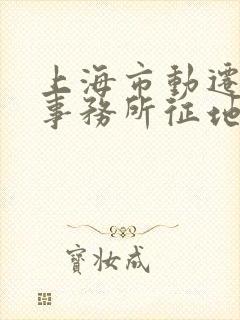 上海市動遷
事務所征地
寶妝成